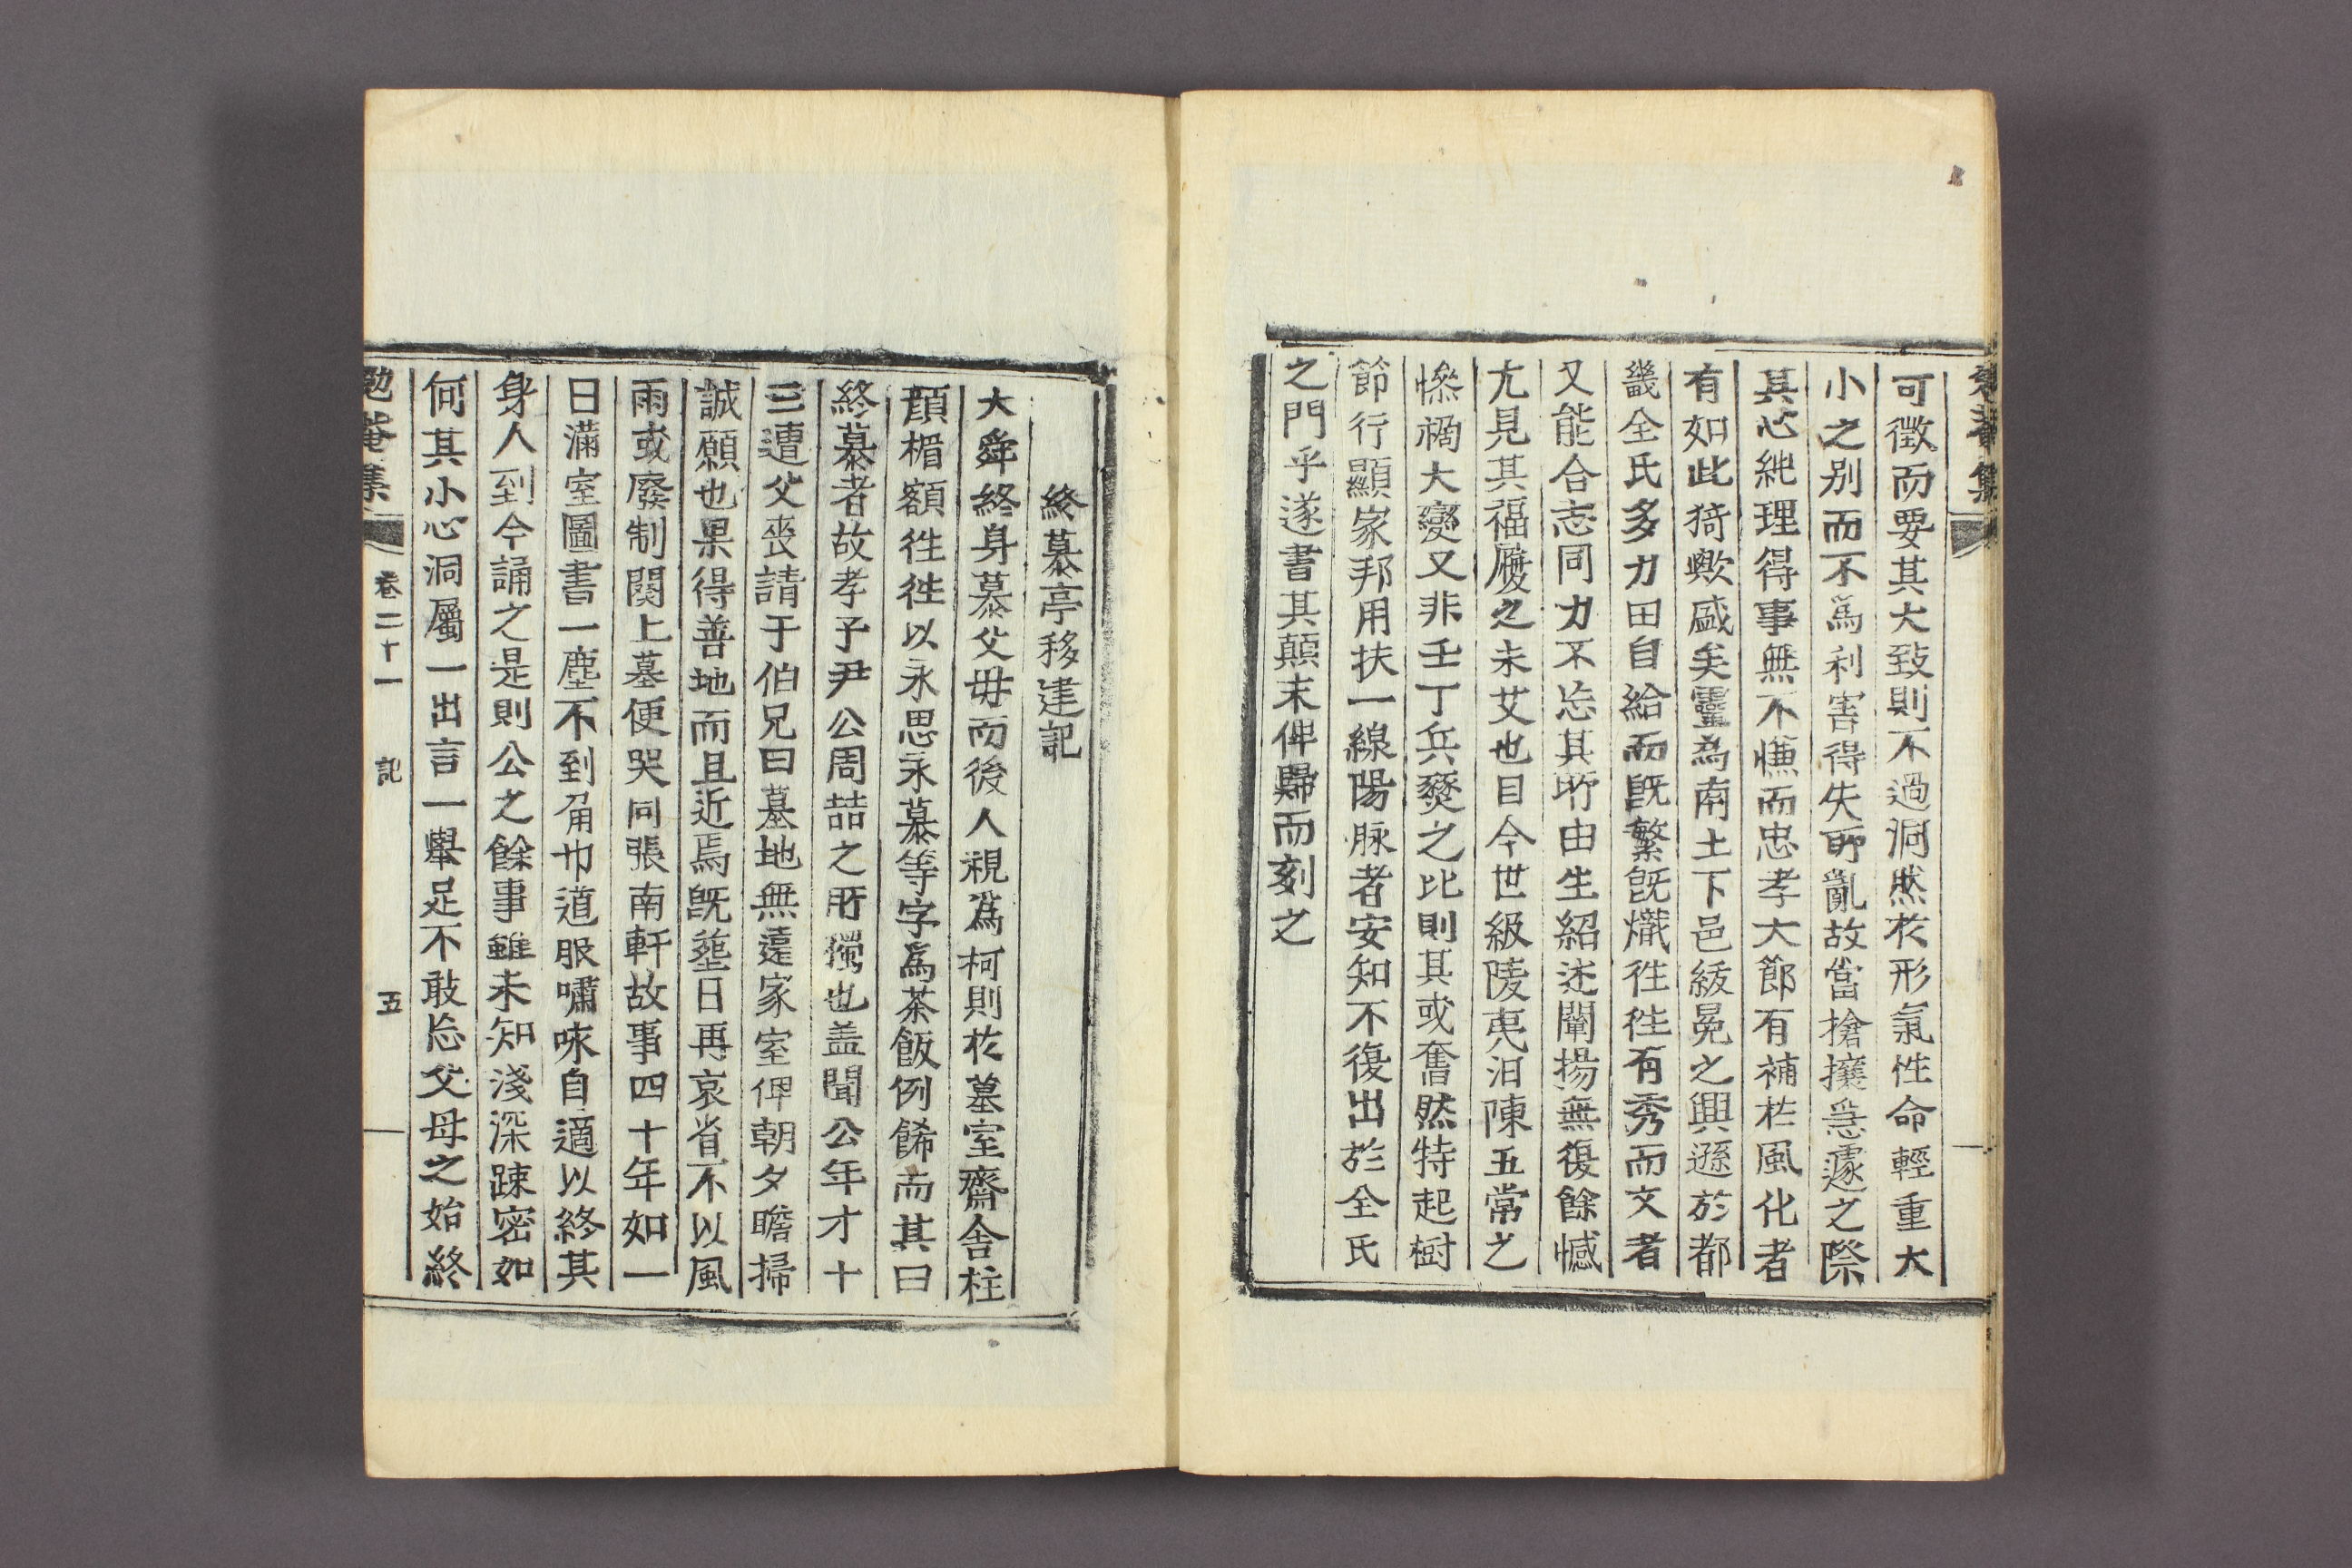 可徵而要其大致則不過洞然於形氣性命輕重大
小之别而不爲利害得失所亂故當搶攘急遽之際
其心純理得事無不慊而忠孝大節有補於風化者
有如此猗歟盛矣靈爲南土下邑紱冕之興遜於都
畿全氏多力田自給而旣繁旣熾徃徃有秀而文者
又能合志同力不忘其所由生紹述闡揚無復餘憾
尤見其福履之未艾也目今世級陵夷汨陳五常之
慘禍大變又非壬丁兵燹之比則其或奮然特起樹
節行顯家邦用扶一線陽脉者安知不復出於全氏
之門乎遂書其顛末俾歸而刻之
終慕亭移建記
大舜終身慕父母而後人視爲柯則於墓室齋舍柱
顔楣額徃徃以永思永慕等字爲茶飯例餙而其曰
終慕者故孝子尹公周喆之所獨也盖聞公年才十
三遭父喪請于伯兄曰墓地無遠家室俾朝夕瞻掃
誠願也果得善地而且近焉旣塟日再哀省不以風
雨或廢制闋上墓便哭同張南軒故事四十年如一
日滿室圖書一塵不到角巾道服嘯咏自適以終其
身人到今誦之是則公之餘事雖未知淺深踈密如
何其小心洞屬一出言一擧足不敢忘父母之始終
勉菴集 卷二十一 記 五